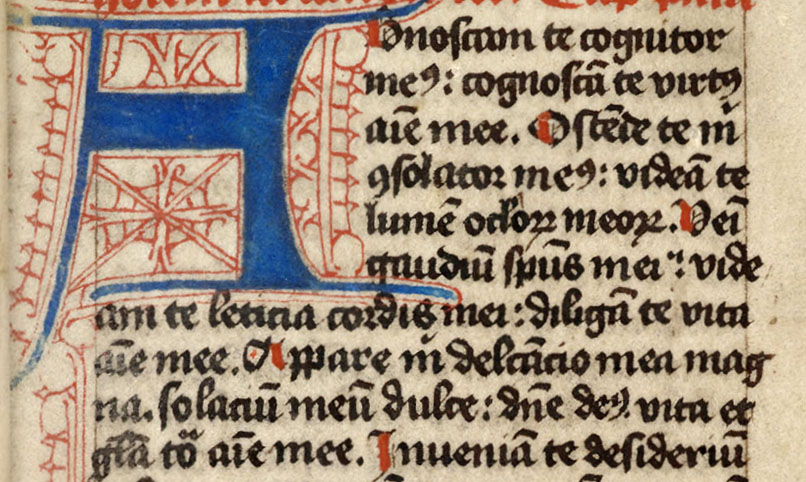 A Gnoscam te cognitor
meꝰ: cognoscā te virtꝰ
aīe mee. Ostēde te m̄
ꝯsolator meꝰ: videā te
lumē oclorꝝ meorꝝ. Veni
gaudiū sp̄us mei: vide
am te leticia cordis mei: diligā te vita
aīe mee. Appare m̄ delcācio mea mag
na. solaciū meū dulce: dn̄e deꝰ. vita et
gl̄a tō aīe mee. Inueniā te desideriū